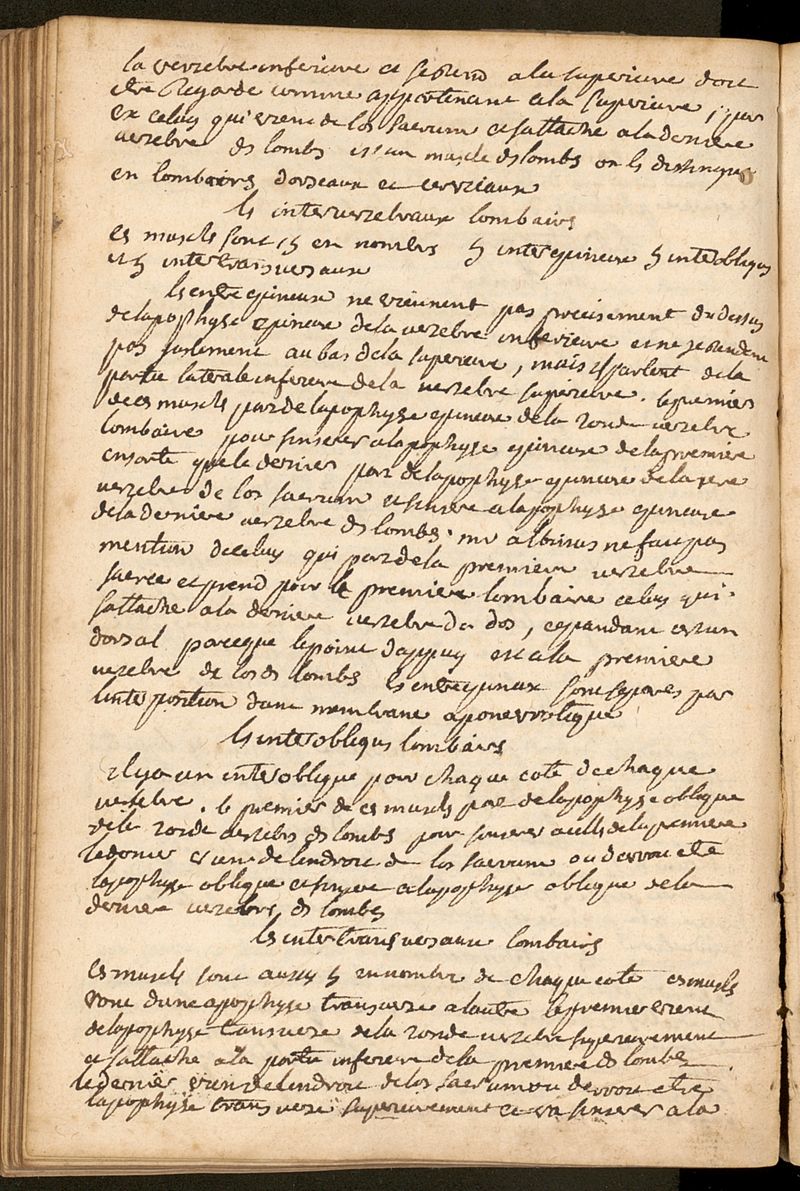 la verzebre inferieure et se rend a la superieure doit
etre Regardé comme appartenant a la superieure, par
ex celuy qui vient de los sacrum et sattache a la derniere
verzebre ds lombs est un muscle ds lombs on ls distingue
en lombairs, dorseaux et cervicaux
ls interverzebraux lombairs
ces muscls sont 15 en nombre 5 interepineux 5 interobliqus
et 5 intertransversaux
ls entre epineux ne viennent pas precisement du dessus
de lapophyse epineuse de la verzebre inferieure et ne se rendent
pas justement au bas de la superieure, mais ils partent de la
partie laterale inferieure de la verzebre superieure. le premier
de ces muscls part de lapophyse epineuse de la 2onde verzebre
lombaire pour sinserer a lapophyse epineuse de la premiere
ensorte que le dernier part de lapophyse epineuse de la 1ere
verzebre de los sacrum et sinsere a lapophyse epineuse
de la derniere verzebre ds lombs. mr albinus ne fait pas
mention de celuy qui part de la premiere verzebre
sacrée et prend pour le premier lombaire celuy qui
sattache a la derniere verzebre du dos, cependant cest un
dorsal parceque le point dappuy est a la premiere
verzebre de los ds lombs ls entrepineux sont separés par
linterposition dune membrane aponevrotique
ls interobliqus lombairs
il y a un interoblique pour chaque coté de chaque
verzebre. le premier de ces muscls part de lapophyse oblique
de la 2onde verzebre ds lombs pour sinserer a celle de la premiere
le dernier vient de lendroit de los sacrum ou devroit etre
lapophyse oblique et sinsere a lapophyse oblique de la
derniere verzebre ds lombs
ls intertransversaux lombairs
ces muscls sont aussy 5 en nombre de chaque coté ces muscls
vont dune apophyse transverse a lautre le premier vient
de lapophyse transverse de la 2onde verzebre superieurement
et sattache a la partie inferieure de la premiere ds lombs
le dernier vient de lendroit de los sacrum ou devroit etre
lapophyse transverse superieurement et va sinserer a la